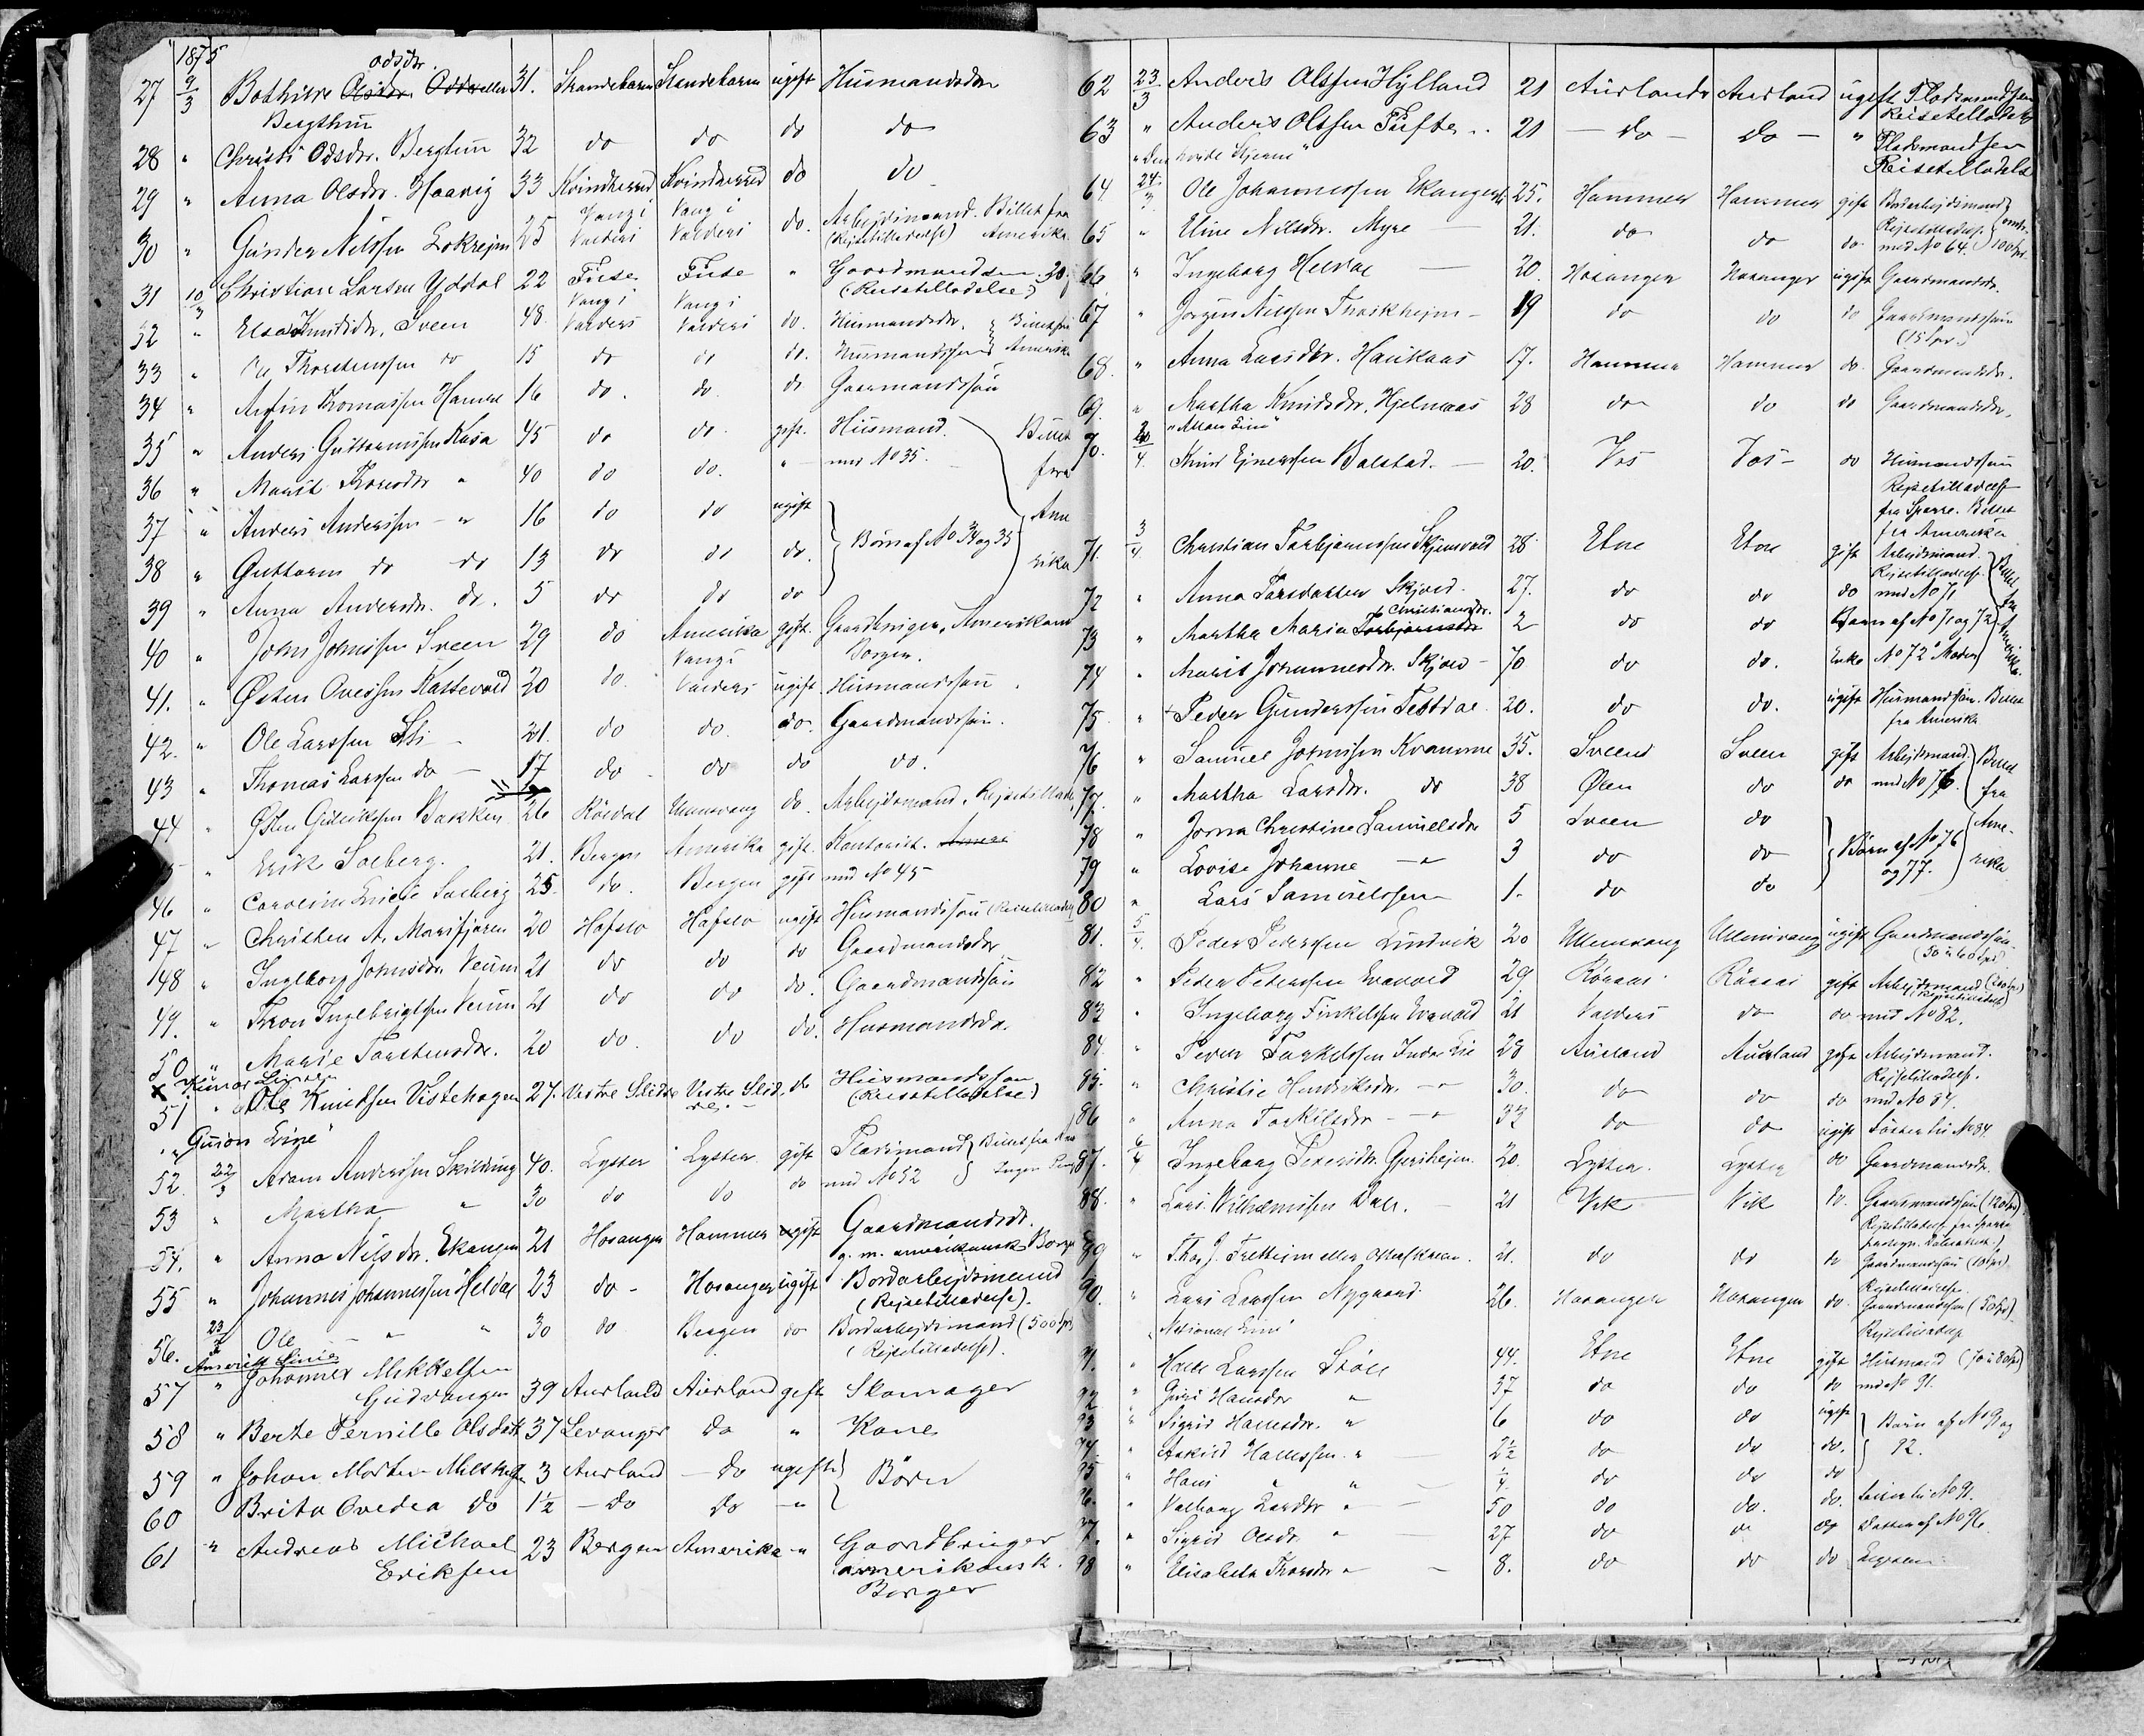 1875
odsdr.
27 9/3 Bothilde Olsdr. Odda eller 31. Strandebarm Strandebarm ugift Husmandsdr
Bergthun
28 " Christi Odsdr. Bergthun 32 do do do do
29 " Anna Olsdr. Haavig 33 Kvindherred Kvindherred do do
30 " Gunder Nilssen Lokrejm 25 Vang i Valders Vang i Valders do. Arbejdsmand. Billet fra
(Rejsetilladelse) Amerika
31 10/3 Christian Larsen Yddal 22 Fuse Fuse " Gaardmandssøn 30
(Reisetilladelse)
32 " Elsa Knudsdr. Sveen 48. Vang i Valders Vang i Valders do. Husmandsdr. Billet fra
33 " Ole Thorstenssen do 15 do do do. Husmandssøn Amerika
34 " Arfin Thomassen Hamre 16 do. do. do Gaarmandssøn
35 " Anders Guttormssen Kasa 45 do do. gift. Husmand. Billet
36 " Marit Thoresdr " 40 do do. " med No 35. fra
37 " Anders Anderssen " 16 do do ugift Ame
38 " Guttorm do do 13 do do do. Børn af No 34 og 35 rika
39 " Anna Andersdr. do. 5 do do do
40 " John Johnssen Sveen 29 do Amerika gift. Gaardbruger, Amerikansk
Borger.
41. " Østen Ovessen Kattevold 20 do. Vang i Valders ugift Husmandssøn
42. " Ole Larssen Sti 21. do do. do. Gaardmandssøn.
43 " Thomas Larssen do 17 do do do do.
44 " Østen Guliksen Bakken 26 Røldal Ullensvang do. Arbejdsmand. Rejsetillad
45 " Erik Solberg. 21. Bergen Amerika gift. Kontorist. Ameri
46 " Caroline Lucie Solberg 25. do. Bergen gift med No 45
47 " Christen A. Marifjæren 20 Hafslo Hafslo ugift Husmandssøn (Reisetilladelse)
48 " Ingeborg Johnsdr. Veum 21 do do do Gaardmandsdr
49. " Thron Ingebrigtsen Veum 21 do do do. Gaardmandssøn
50 " Marie Torstensdr. 20 do. do do. Husmandsdr.
x "Cunard Linie"
51 " Ole Knudsen Vistehagen 27. Vestre Slidre Vestre Slidre. do Husmandssøn
(Reisetilladelse)
"Guion Linie"
52. 22/3 Aron Anderssen Skildring 40. Lyster Lyster gift Pladsmand Billet fra Am
53 " Martha " 30 do do do med No 52 Ingen Penge
54. " Anna Nilsdr. Ekangen 21 Hosanger Hammer ugift Gaardmandsdr.
g. m. amerikansk Borger
55 " Johannes Johannessen Heldal 23 do- Hosanger ugift Bordarbejdsmand
(Rejsetilladelse).
56. 23/3 Ole " " 30 do Bergen do Bordarbejdsmand (500 Spd)
(Rejsetilladelse).
Amerik Linie
57 " Johannes Mikkelsen
Gudvangen 39 Aurland Aurland gift Skomager
58 " Berte Pernille Olsdatt 37 Levanger do " Kone
59 " Johan Morten Mikkels 3 Aurland - do ugifte Børn
60 Brita Ovedia do 1½ - do do - "
61 " Andreas Michael 23 Bergen Amerika - " Gaardbruger
Eriksen amerikansk.
Borger
62 23/3 Anders Olssen Hylland 21 Aurlands Aurland ugift Pladsmandssøn
Reisetilladelse
63 " Anders Olssen Tufte .. 21 - do - Do - " Pladsmandsøn
Reisetilladelse
"Den hvide Stjerne"
64 24/3 Ole Johannessen Ekanger 25. Hammer Hammer gift Bordarbejdsmand
65 " Eline Nilsdr. Myre 21. do do do. Rejsetilladelse. med No 64. 100 Spd.
66 " Ingeborg Heldal 20. Hosanger Hosanger ugift Gaardmandsdr.
67 " Jørgen Nilssen Thorskhejm - 19 do do do Gaardmandssøn
(15 Spd.)
68. " Anna Larsdtr. Haukaas 17. Hammer Hammer do. Gaardmandsdr.
69. " Martha Knudsdr. Hjelmaas 28 do do do Gaardmandsdr.
"Allan Linie"
70. 4. Knud Ejnerssen Bolstad. 20. Vos Vos - do Husmandssøn
Rejsetilladelse
fra Sparre. Billet
fra Amerika
71. 3/4 Christian Torbjørnssen Skjensvold 28 Etne Etne gift Arbejdsmand.
Rejsetilladelse.
72 " Anna Torsdatter Skjold. 27. do do do med No 71
Christiansdr.
73 " Martha Maria Torbjørnsdr 2 do do Barn af No 71 og 72
74 " Marit Johannesdr. Skjold - 70 do do. Enke No 72s Moder
75 " Peder Gunderssen Teftdal 20. do do. ugift Husmandssøn. Billet
fra Amerika
76 " Samuel Johnssen Kvamme 35. Sveen Sveen gift Arbejdsmand. Billet
77. " Martha Larsdr. do 38 Ølen do do med No 76. fra
78 " Jorna Christine Samuelsdr 5 Sveen do Ame-
79 " Lovise Johanne - " 3 do do Børn af No 76 og 77. rika
80 " Lars Samuelssen 1. do do
81. 5/4 Peder Pederssen Lindvik 20 Ullensvang Ullensvang ugift Gaardmandssøn.
(50 à 60 Spd)
82 " Peder Pederssen Evavold 29 Røraas Røraas gift Arbejdsmand (200 Spd)
(Rejsetilladelse)
83 " Ingeborg Finkelsen Evavold 21 Valders do do med No 82.
84. " Peder Torkelssen Indre Lie 28 Aurland Aurland gift Arbejdsmand.
Rejsetilladelse.
85. " Christie Hendriksdr. - " 30. do do do med No 84.
86 " Anna Torkilsdr - " 33 do do ugift Søster til No 84.
87. 6/4 Ingeborg Pedersdr. Gjershejm 20. Lyster. Lyster do Gaardmandsdr.
88. " Lars Wilhelmssen Dale. 21 Vik Vik do. Gaardmandssøn (120 Spd)
89 " Thos. J. Fretheim eller 21. do do do Gaardmandssøn (10 Spd).
Rejsetilladelse.
90. " Lars Larssen Nygaard 26. Hosanger Hosanger do. Gaardmandssøn (50 Spd).
Rejsetilladelse
"National Linie"
91. " Halle Larssen Støle 44. Etne Etne gift Husmand (70 à 80 Spd)
92 " Guri Hansdr " 37 do do do med No 91.
93 " Sigrid Hallesdr. " 6 do do ugift Børn af No 91 og
94. " Askild Hallessen. " 2½ do do do. 92.
95 " Hans " " ¼ do do do
96. " Valborg Larsdr " 50 do do. do. Søster til No 91.
97. " Sigrid Olsdr. " 27 do do do Datter af No 96
98 " Elisabeth Thorsdr " 8. do do do